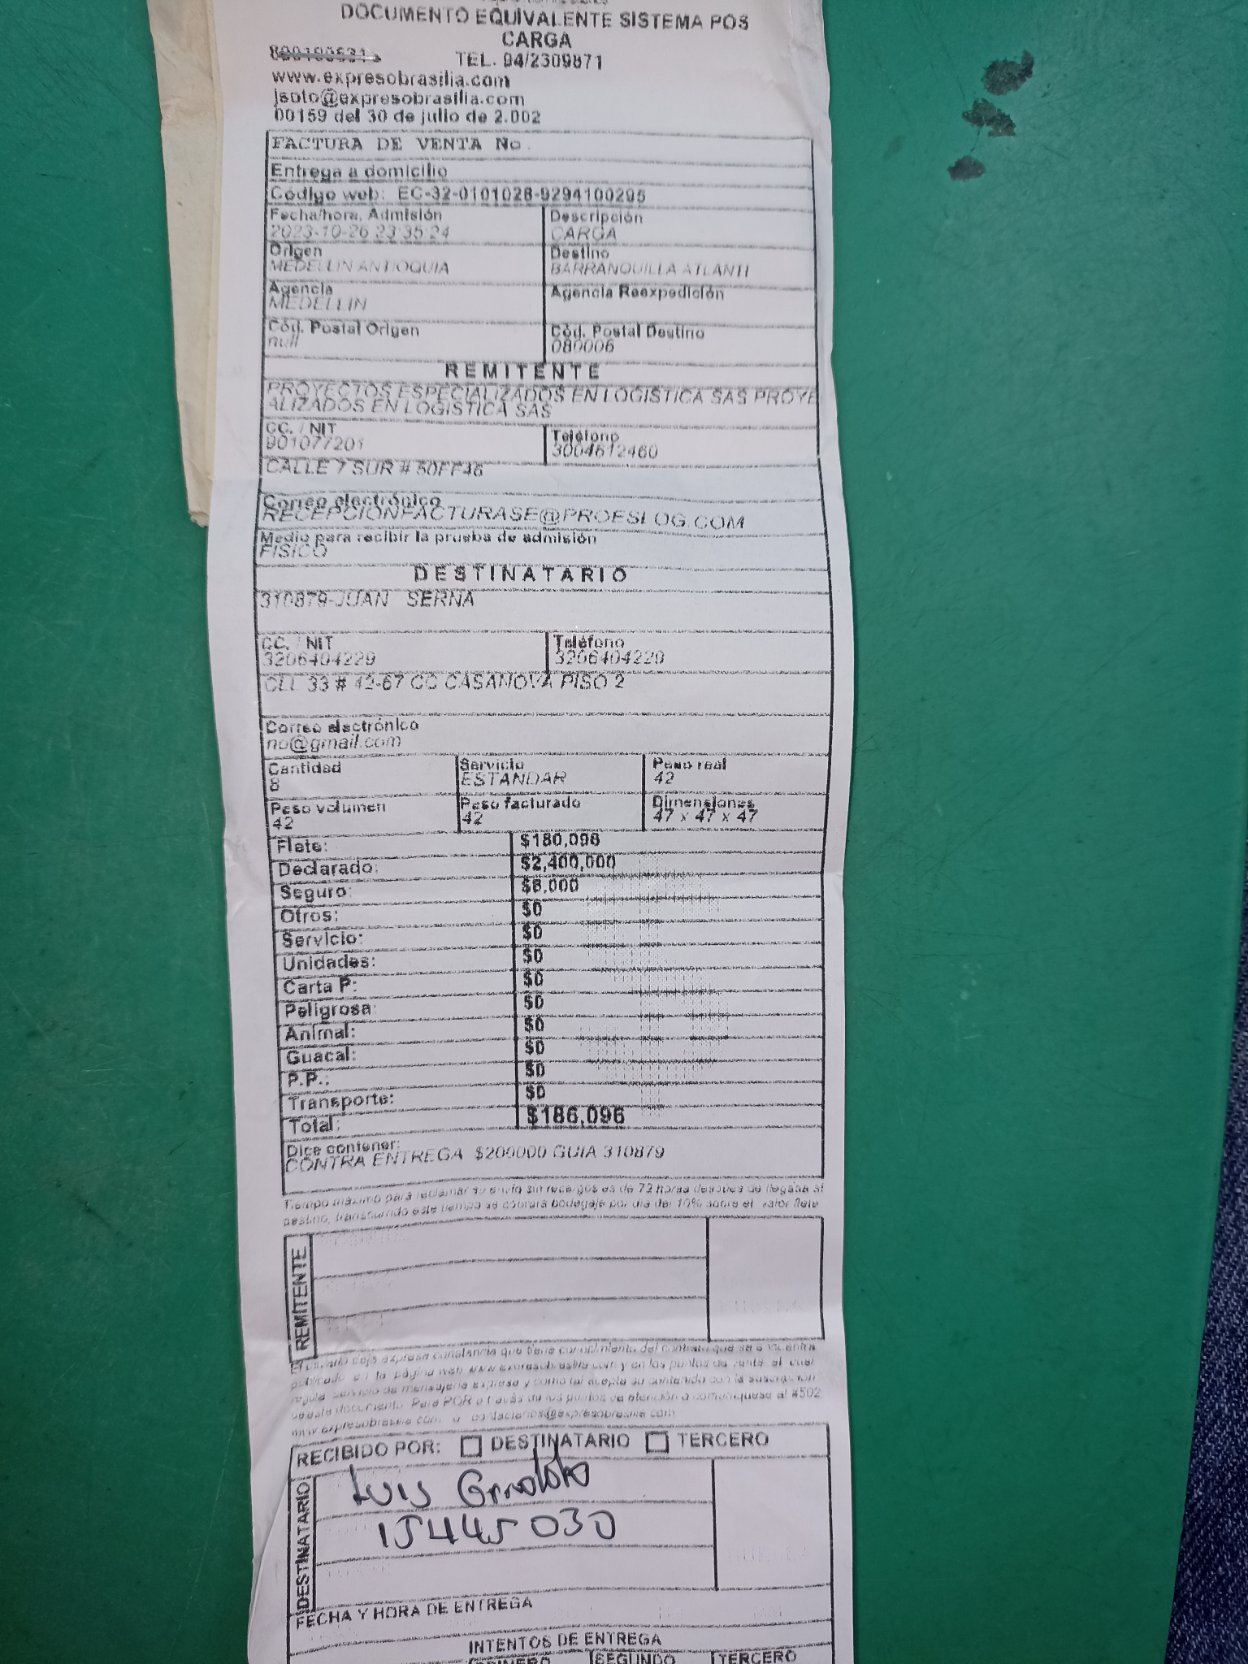 DOCUMENTO EQUIVALENTE SISTEMA POS
CARGA
TEL. 94/2309871
www.expresobrasilia.com
jsoto@expresobrasilia.com
00159 del 30 de julio de 2.002
FACTURA DE VENTA No.
Entrega a domicilio
Código web: EC-32-0101028-9294100295
Fecha/hora, Admisión Descripción
2023-10-26 23:35:24 CARGA
Origen Destino
MEDELLIN ANTIOQUIA BARRANQUILLA ATLANTI
Agencia Agencia Reexpedición
MEDELLIN
Cód. Postal Origen Cód. Postal Destino
null 080006
REMITENTE
PROYECTOS ESPECIALIZADOS EN LOGISTICA SAS PROYE
ALIZADOS EN LOGISTICA SAS
CC. / NIT Teléfono
901077201 3004612460
CALLE 7 SUR # 50FF46
Correo electrónico
RECEPCIONFACTURASE@PROESLOG.COM
Medio para recibir la prueba de admisión
FISICO
DESTINATARIO
310879-JUAN SERNA
CC. / NIT Teléfono
3206404229 3206404229
CLL 33 # 42-67 CC CASANOVA PISO 2
Correo electrónico
no@gmail.com
Cantidad Servicio Peso real
8 ESTANDAR 42
Peso volumen Peso facturado Dimensiones
42 42 47 x 47 x 47
Flete: $180,096
Declarado: $2,400,000
Seguro: $6,000
Otros: $0
Servicio: $0
Unidades: $0
Carta P: $0
Peligrosa: $0
Animal: $0
Guacal: $0
P.P.: $0
Transporte: $0
Total: $186,096
Dice contener:
CONTRA ENTREGA $200000 GUIA 310879
Tiempo máximo para reclamar su envío sin recargos es de 72 horas después de llegada al
destino, transcurrido este tiempo se cobrará bodegaje por día del 10% sobre el valor flete
REMITENTE
expresa constancia que tiene conocimiento del contrato que se encuentra
publicado en la página web www.expresobrasilia.com y en los puntos de venta el cual
regula servicio de mensajería expresa y como tal acepta su contenido con la suscripción
de este documento. Para PQR a través de los puntos de atención o comuníquese al #502
RECIBIDO POR: DESTINATARIO TERCERO
DESTINATARIO
Luis
15445030
FECHA Y HORA DE ENTREGA
INTENTOS DE ENTREGA
PRIMERO SEGUNDO TERCERO